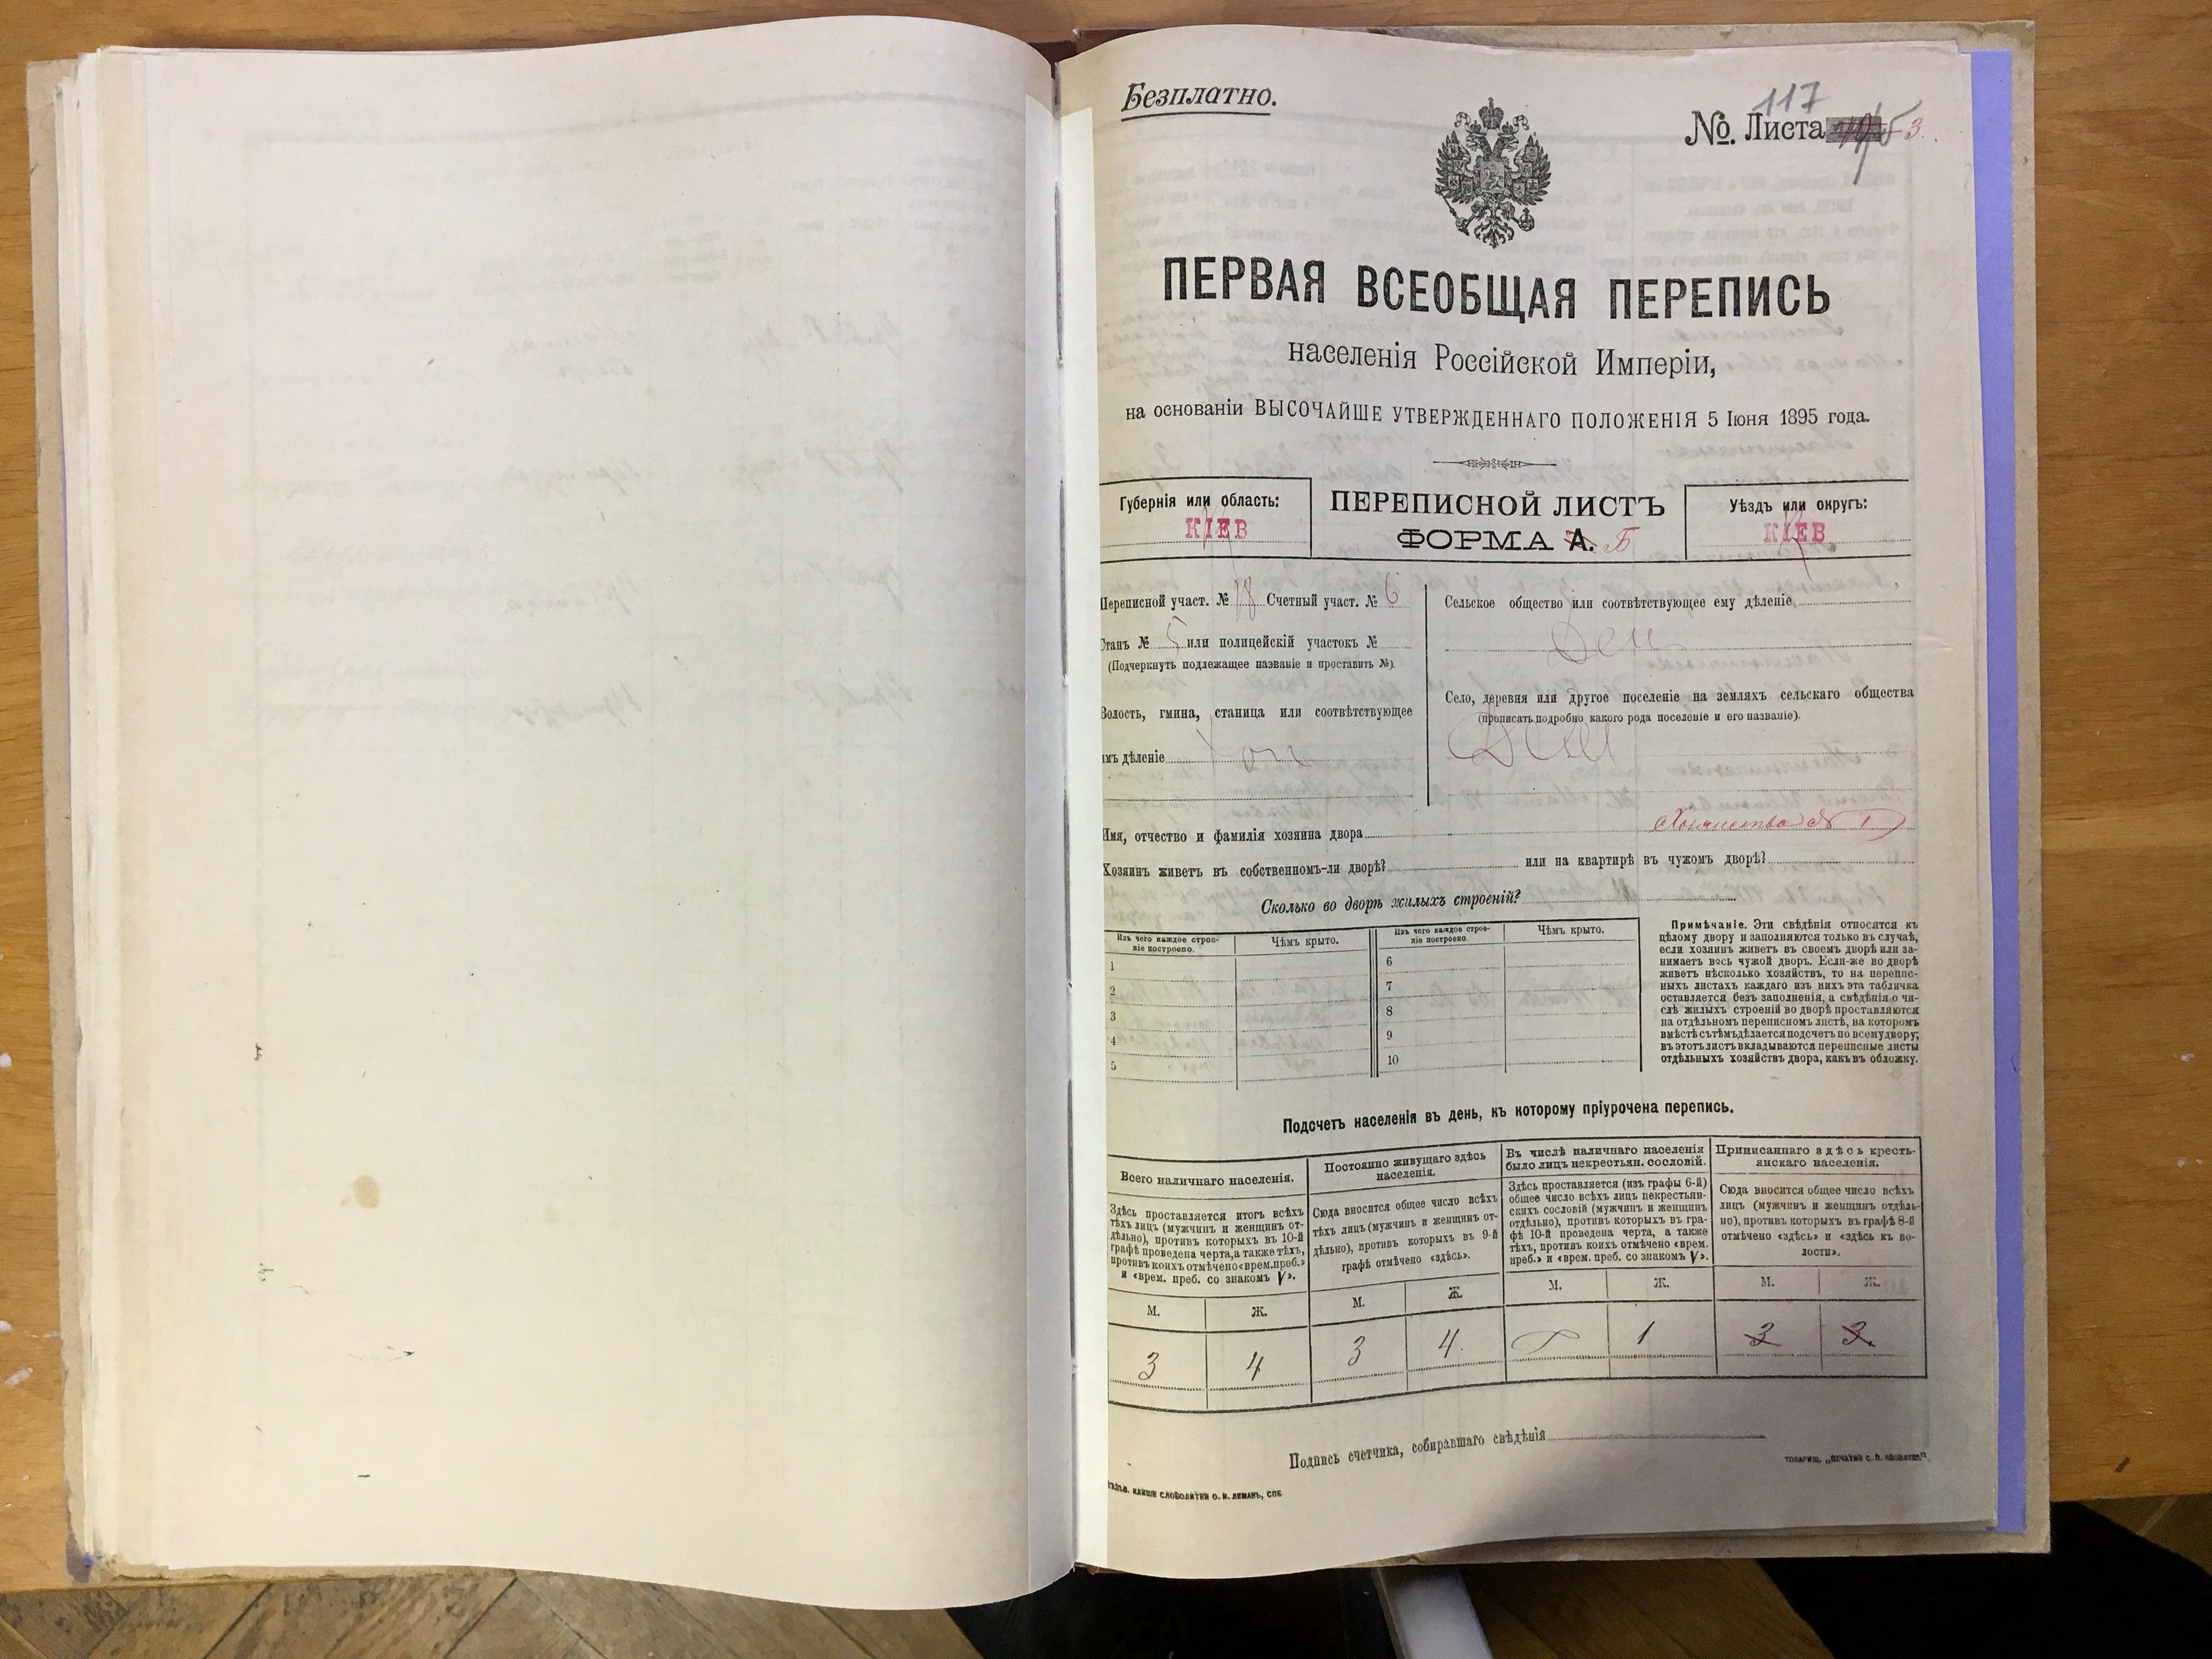 Безплатно.
117
№ Листа 3.
ПЕРВАЯ ВСЕОБЩАЯ ПЕРЕПИСЬ
населенія Россійской Имперіи,
на основаніи ВЫСОЧАЙШЕ УТВЕРЖДЕННАГО ПОЛОЖЕНІЯ 5 Іюня 1895 года.
Губернія или область:
КІЕВ
ПЕРЕПИСНОЙ ЛИСТЪ
ФОРМА А. Б
Уѣздъ или округъ:
КІЕВ
Переписной участ. № 18 Счетный участ. № 6
Станъ № 5 или полицейскій участокъ №
(Подчеркнуть подлежащее названіе и проставить №).
Волость, гмина, станица или соотвѣтствующее
имъ дѣленіе Хот
Сельское общество или соотвѣтствующее ему дѣленіе
Дем
Село, деревня или другое поселеніе на земляхъ сельскаго общества
(прописать подробно какого рода поселеніе и его названіе).
Дем
Хозяйство № 1
Имя, отчество и фамилія хозяина двора
Хозяинъ живетъ въ собственномъ-ли дворѣ? или на квартирѣ въ чужомъ дворѣ?
Сколько во дворѣ жилыхъ строеній?
Изъ чего каждое строе-
ніе построено.
Чѣмъ крыто.
1
2
3
4
5
Изъ чего каждое строе-
ніе построено.
Чѣмъ крыто.
6
7
8
9
10
Примѣчаніе. Эти свѣдѣнія относятся къ
цѣлому двору и заполняются только въ случаѣ,
если хозяинъ живетъ въ своемъ дворѣ или за-
нимаетъ весь чужой дворъ. Если-же во дворѣ
живетъ нѣсколько хозяйствъ, то на перепис-
ныхъ листахъ каждаго изъ нихъ эта табличка
оставляется безъ заполненія, а свѣдѣнія о чи-
слѣ жилыхъ строеній во дворѣ проставляются
на отдѣльномъ переписномъ листѣ, на которомъ
вмѣстѣ съ тѣмъ дѣлается подсчетъ по всему двору;
въ этотъ листъ вкладываются переписные листы
отдѣльныхъ хозяйствъ двора, какъ въ обложку.
Подсчетъ населенія въ день, къ которому пріурочена перепись.
Всего наличнаго населенія.
Здѣсь проставляется итогъ всѣхъ
тѣхъ лицъ (мужчинъ и женщинъ от-
дѣльно), противъ которыхъ въ 10-й
графѣ проведена черта, а также тѣхъ,
противъ коихъ отмѣчено «врем. преб.»
и «врем. преб. со знакомъ V».
М. Ж.
3 4
Постоянно живущаго здѣсь
населенія.
Сюда вносится общее число всѣхъ
тѣхъ лицъ (мужчинъ и женщинъ от-
дѣльно), противъ которыхъ въ 9-й
графѣ отмѣчено «здѣсь».
М. Ж.
3 4.
Въ числѣ наличнаго населенія
было лицъ некрестьян. сословій.
Здѣсь проставляется (изъ графы 6-й)
общее число всѣхъ лицъ некрестьян-
скихъ сословій (мужчинъ и женщинъ
отдѣльно), противъ которыхъ въ гра-
фѣ 10-й проведена черта, а также
тѣхъ, противъ коихъ отмѣчено «врем.
преб.» и «врем. преб. со знакомъ V».
М. Ж.
1
Приписаннаго здѣсь кресть-
янскаго населенія.
Сюда вносится общее число всѣхъ
лицъ (мужчинъ и женщинъ отдѣль-
но), противъ которыхъ въ графѣ 8-й
отмѣчено «здѣсь» и «здѣсь къ во-
лости».
М. Ж.
3 3
Подпись счетчика, собиравшаго свѣдѣнія
КЛИШЕ СЛОВОЛИТНИ О. И. ЛЕМАНЪ, СПБ
ТОВАРИЩ. „ПЕЧАТНЯ С. П. ЯКОВЛЕВА".